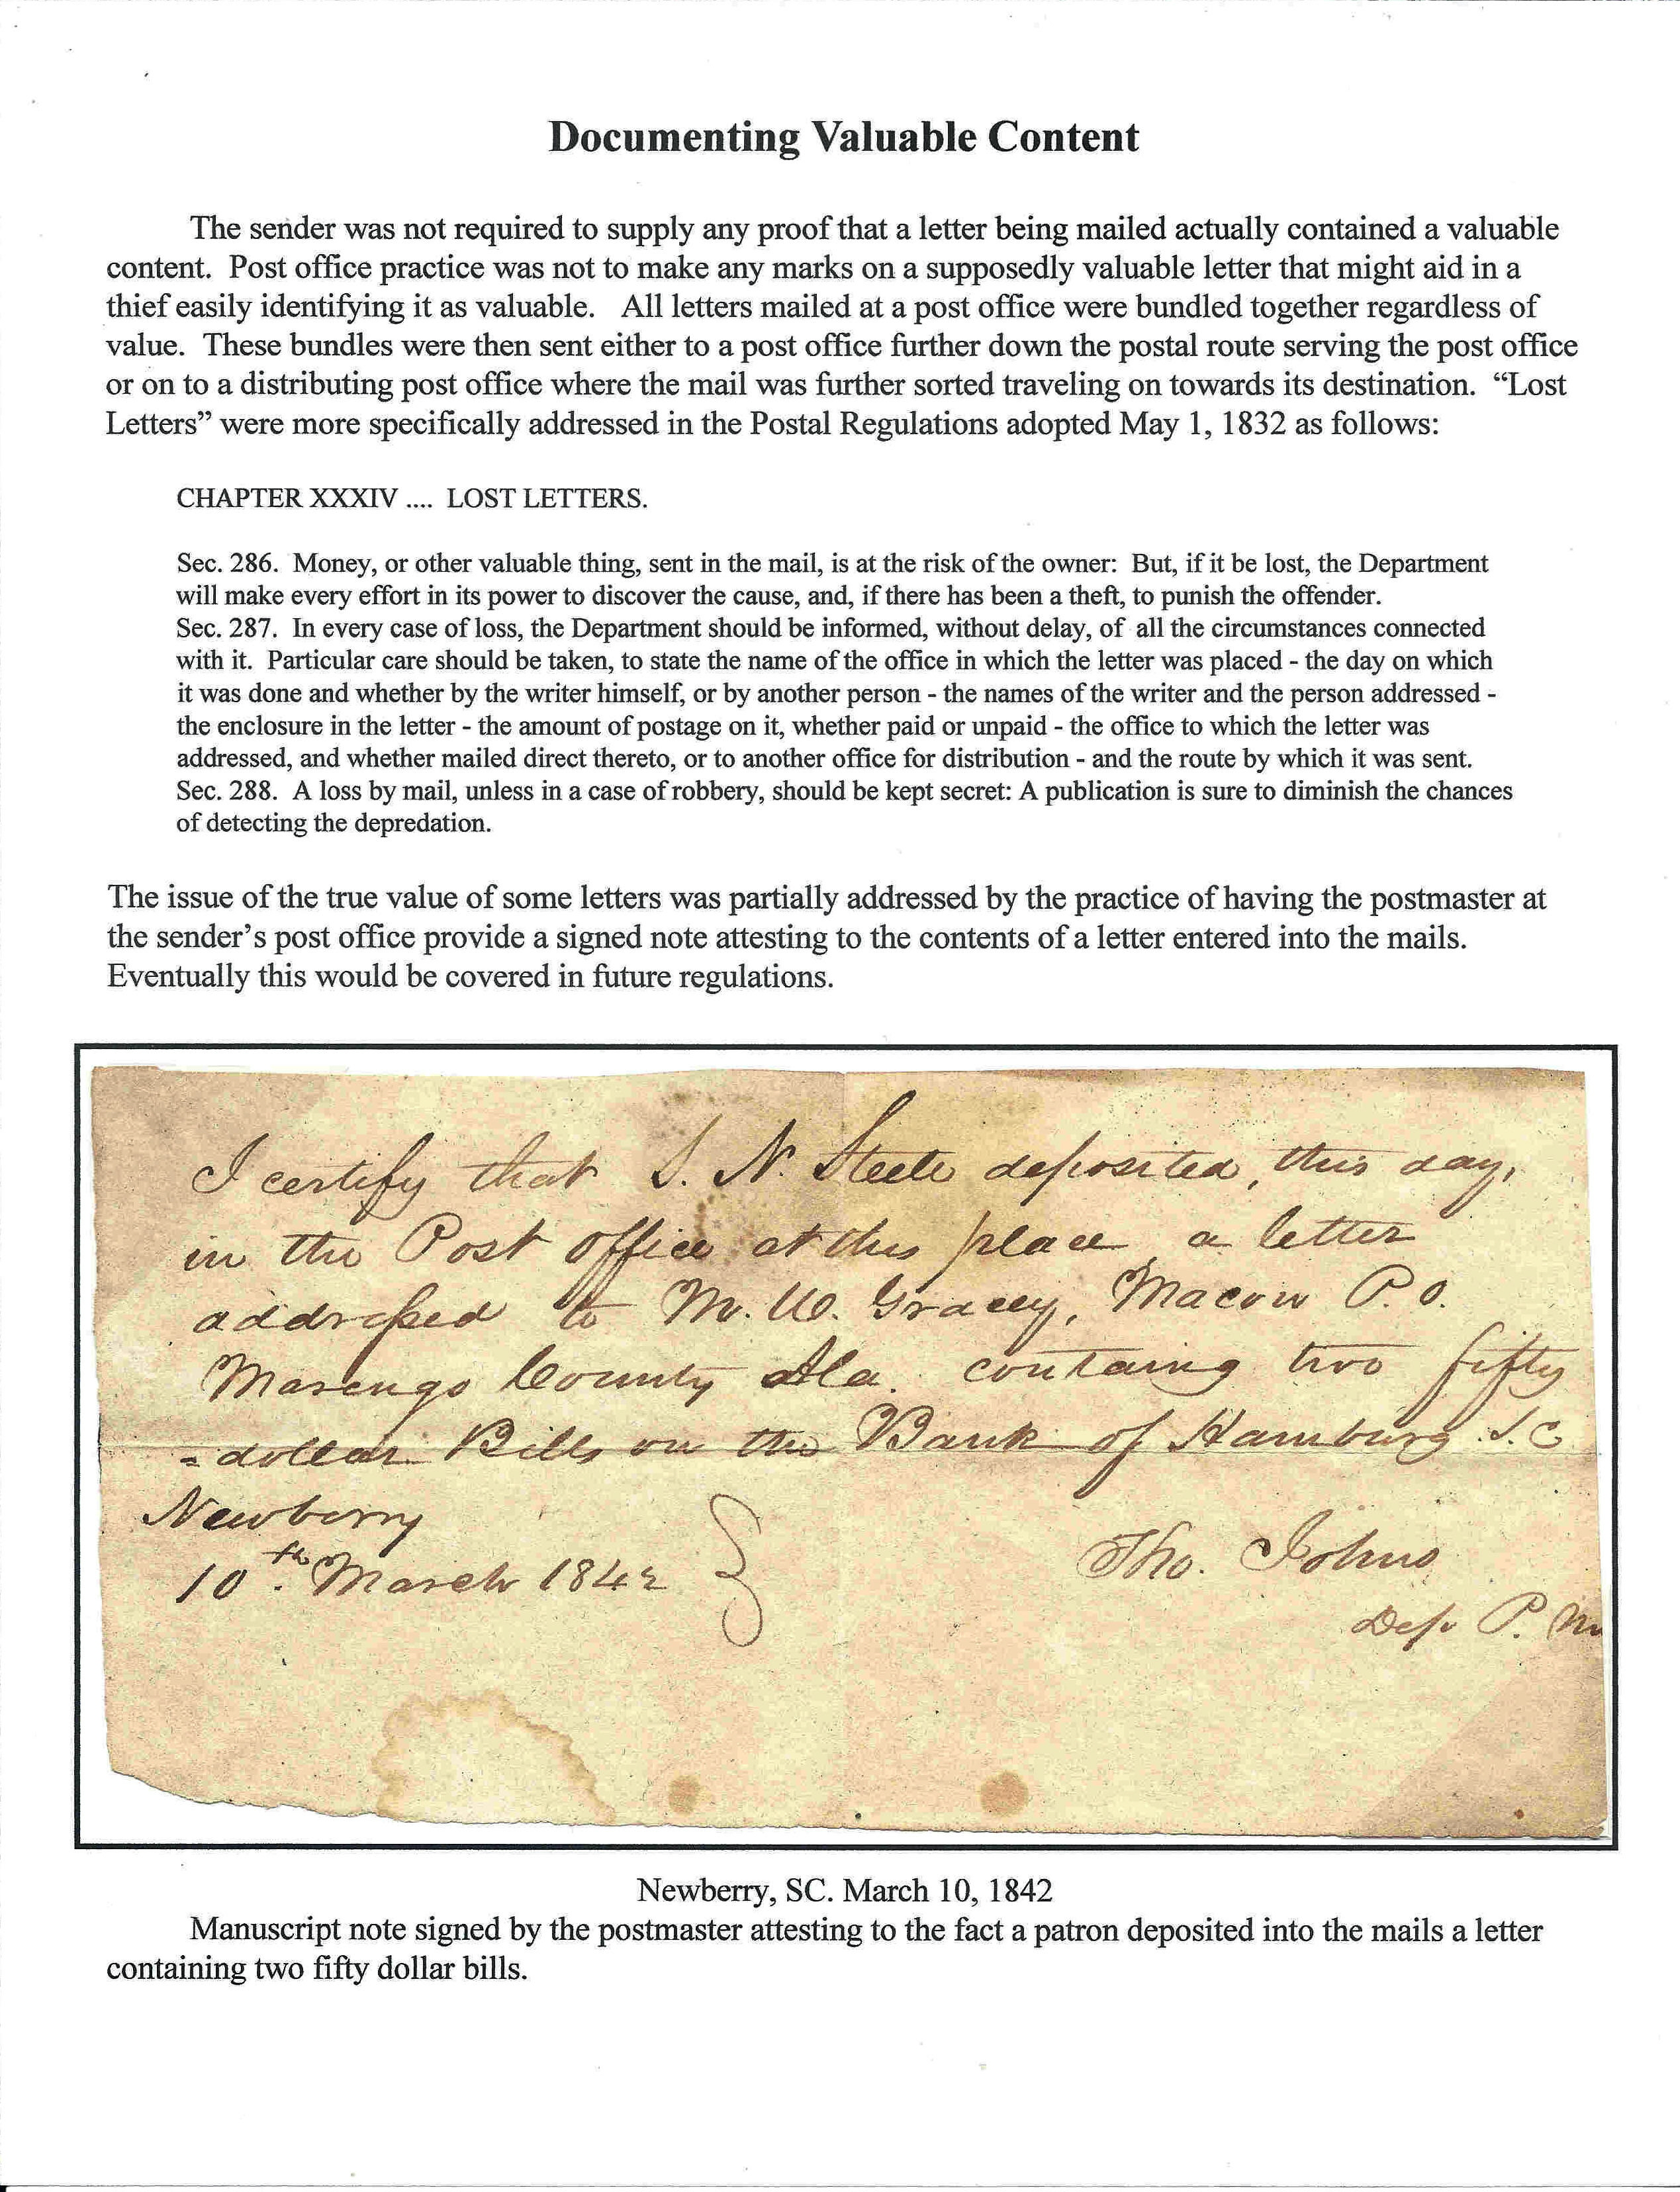 Documenting Valuable Content
The sender was not required to supply any proof that a letter being mailed actually contained a valuable
content. Post office practice was not to make any marks on a supposedly valuable letter that might aid in a
thief easily identifying it as valuable. All letters mailed at a post office were bundled together regardless of
value. These bundles were then sent either to a post office further down the postal route serving the post office
or on to a distributing post office where the mail was further sorted traveling on towards its destination. “Lost
Letters” were more specifically addressed in the Postal Regulations adopted May 1, 1832 as follows:
CHAPTER XXXIV .... LOST LETTERS.
Sec. 286. Money, or other valuable thing, sent in the mail, is at the risk of the owner: But, if it be lost, the Department
will make every effort in its power to discover the cause, and, if there has been a theft, to punish the offender.
Sec. 287. In every case of loss, the Department should be informed, without delay, of all the circumstances connected
with it. Particular care should be taken, to state the name of the office in which the letter was placed - the day on which
it was done and whether by the writer himself, or by another person - the names of the writer and the person addressed -
the enclosure in the letter - the amount of postage on it, whether paid or unpaid - the office to which the letter was
addressed, and whether mailed direct thereto, or to another office for distribution - and the route by which it was sent.
Sec. 288. A loss by mail, unless in a case of robbery, should be kept secret: A publication is sure to diminish the chances
of detecting the depredation.
The issue of the true value of some letters was partially addressed by the practice of having the postmaster at
the sender’s post office provide a signed note attesting to the contents of a letter entered into the mails.
Eventually this would be covered in future regulations.
I certify that S. N. Steele deposited, this day,
in the Post office at this place a letter
addressed to M. W. Gracey, Macon P.O.
Marengo County Ala. containg two fifty
-dollar Bills on the Bank of Hamburg S.C
Newberry
10th March 1842
Tho. Johns
Dep P. M
Newberry, SC. March 10, 1842
Manuscript note signed by the postmaster attesting to the fact a patron deposited into the mails a letter
containing two fifty dollar bills.